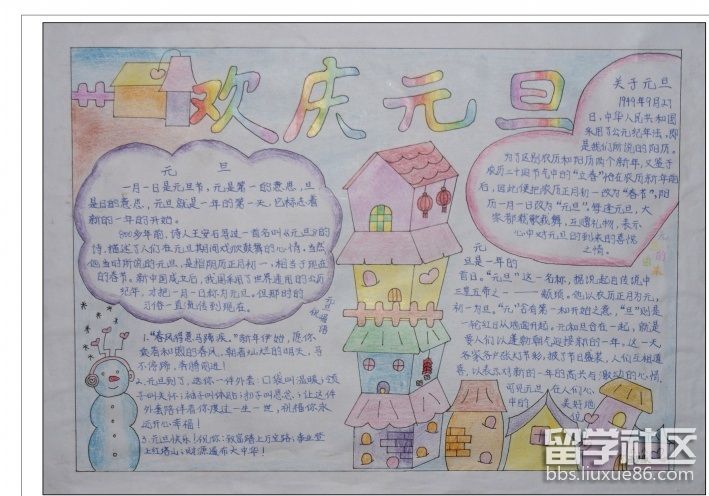 欢庆元旦
关于元旦
1949年9月27
日,中华人民共和国
采用了公元纪年法,即
是我们所说的阳历。
为了区别农历和阳历两个新年,又鉴于
农历二十四节气中的“立春”恰在农历新年前
后,因此便把农历正月初一改为“春节”,阳
历一月一日改为“元旦”。每逢元旦,大
家都载歌载舞,互赠礼物,表示
心中对元旦的到来的喜悦
之情。
元 旦
一月一日是元旦节,元是第一的意思,旦
是日的意思,元旦就是一年的第一天,它标志着
新的一年的开始。
900多年前,诗人王安石写过一首名叫《元旦》的
诗,描述了人们在元旦期间欢欣鼓舞的心情。当然
他当时所说的元旦,是指阴历正月初一,相当于现在
的春节。新中国成立后,我国采用了世界通用的公历
纪年,才把一月一日称为元旦。但那时的
习俗一直流传到现在。
元旦祝福语
1、“春风得意马蹄疾。”新年伊始,愿你
乘着和煦的春风,朝着灿烂的明天,马
不停蹄,奔腾前进!
2、元旦到了,送你一件外套:口袋叫温暖;领
子叫关怀;袖子叫体贴;扣子叫思念;让这件
外套陪伴着你度过一生一世,祝福你永
远开心幸福!
3、元旦快乐!祝你:致富踏上万宝路,事业登
上红塔山,财源遍布大中华!
元
旦是一年的
首日。“元旦”这一名称,据说起自传说中
三皇五帝之一——颛顼。他以农历正月为元,
初一为旦。“元”含有第一和开始之意,“旦”则是
一轮红日从地面升起。元和旦合在一起,就是
要人们以蓬勃朝气迎接新的一年。这一天
家家户户张灯节彩,披了节日盛装,人们互相道
喜,以表示对新的一年的高兴与激动的心情,
可见元旦在人们心
中的
美好地
留学社区
bbs.liuxue86.com